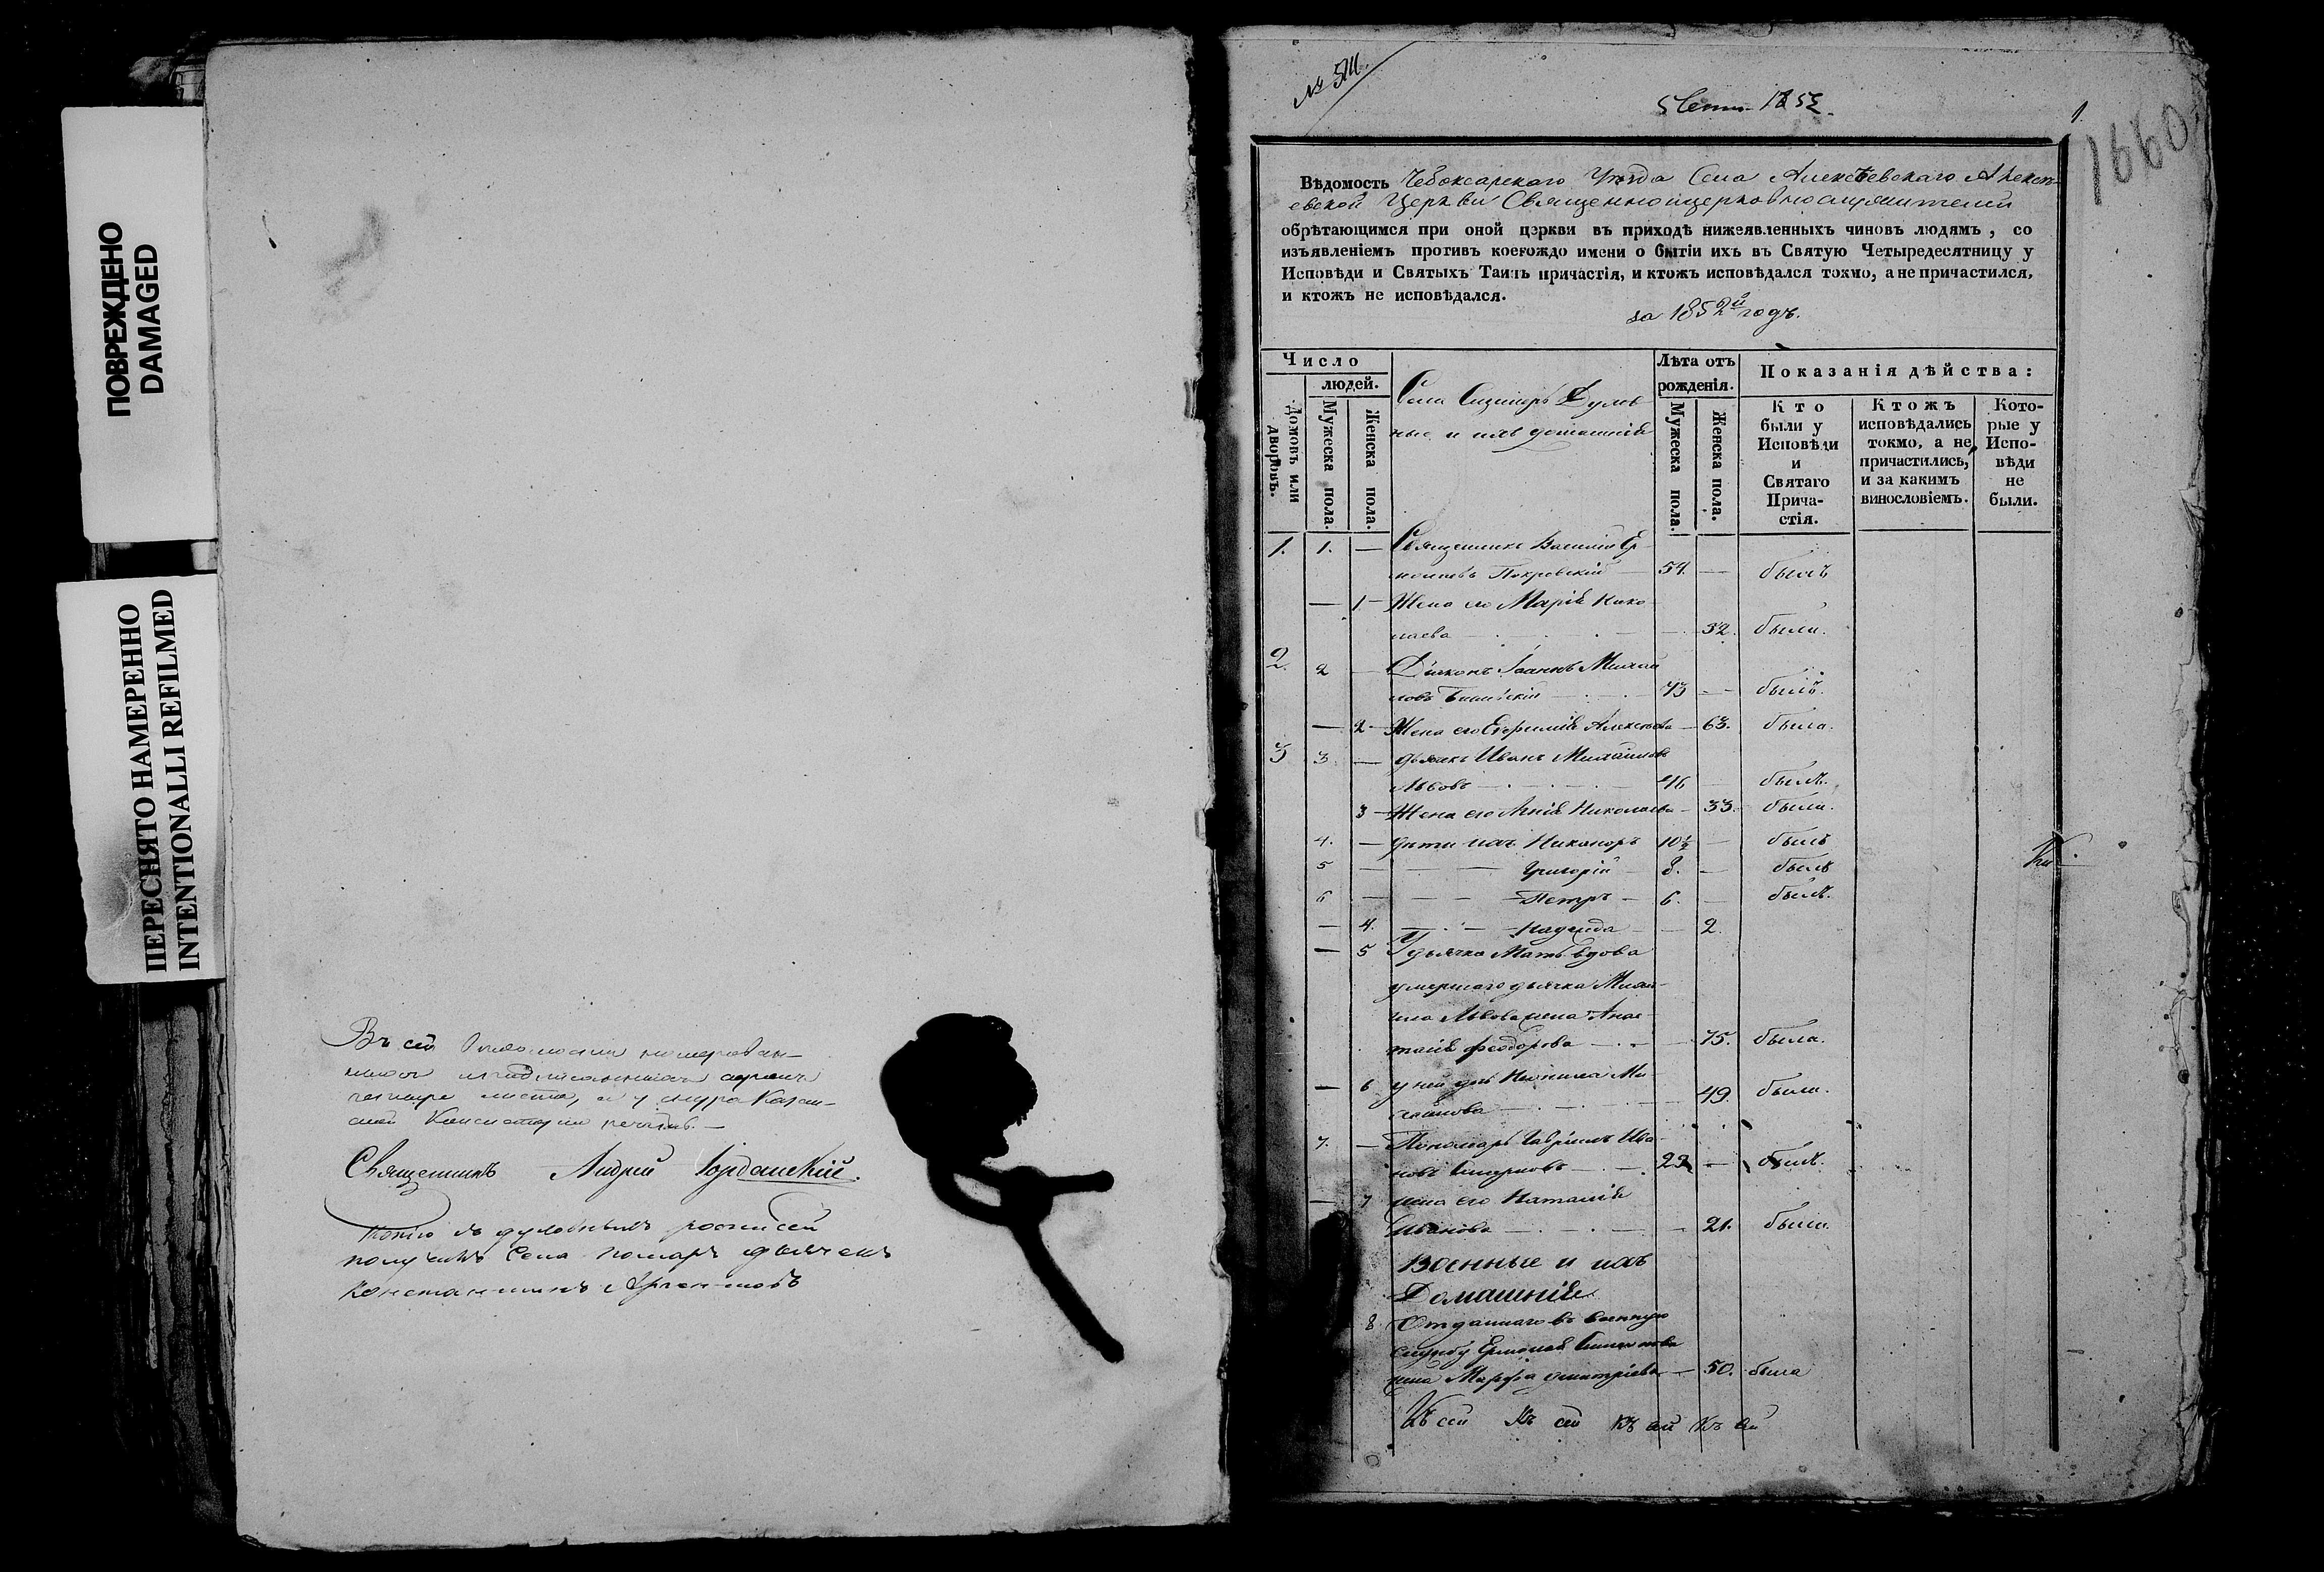 ПОВРЕЖДЕНО
DAMAGED
ПЕРЕСНЯТО НАМЕРЕННО
INTENTIONALLI REFILMED
Въ сей
четыре листа, и у шнура Казан-
ской Консисторіи печать.—
Священникъ Андрей Іорданскій.
Копію съ духовныхъ росписей
получилъ Села дьячекъ
Константинъ
№
1852.
1.
1660
Вѣдомость Чебоксарскаго Уѣзда Села Алексѣевскаго Алексѣ-
евской Церкви Священноицерковнослужителей
обрѣтающимся при оной церкви въ приходѣ нижеявленныхъ чиновъ людямъ, со
изъявленіемъ противъ коегождо имени о бытіи ихъ въ Святую Четыредесятницу у
Исповѣди и Святыхъ Таинъ причастія, и ктожъ исповѣдался токмо, а не причастился,
и ктожъ не исповѣдался.
за 1852й годъ.
Число
людей.
Домовъ или дворовъ.
Мужеска пола.
Женска пола.
Села Духов
ные и ихъ домашніе
Лѣта отъ
рожденія.
Мужеска пола.
Женска пола.
Показанія дѣйства:
Кто
были у
Исповѣди
и
Святаго
Прича-
стія.
Ктожъ
исповѣдались
токмо, а не
причастились,
и за какимъ
винословіемъ.
Кото-
рые у
Испо-
вѣди
не
были.
1. 1. — Священникъ Василій Ер
Покровскій — 54. — былъ
— 1 — Жена его Марія Нико
лаева — 32. была.
2. 2 — Діаконъ Іоаннъ Михаи
ловъ — 73 — былъ.
— 2 — Жена его Евфимія Алексѣева — 63. была.
3 3 — дьячекъ Иванъ Михайловъ
Львовъ — 46 — былъ.
3 — Жена его Анна Николаева — 33. была.
4. — дѣти ихъ Никаноръ 10½ — былъ
5 — Григорій 8. — былъ
6 — Петръ — 6. — былъ.
— 4. — Надежда — 2.
— 5 У дьячка Мать вдова
умершаго дьячка Миха-
ила Львова жена Анас-
тасія Феодорова — 75. была.
— 6 у ней дочь Ми-
хайлова — 49. была.
7. — Пономарь Гавріилъ Ива-
новъ Смирновъ — 23 — былъ.
— 7 жена его Наталія
Иванова — 21. была.
Военные и ихъ
Домашніе
8. Отданнаго въ военную
службу Ермолая
жена Марфа Димитріева — 50. была
Къ сей Къ сей Къ сей Къ сей